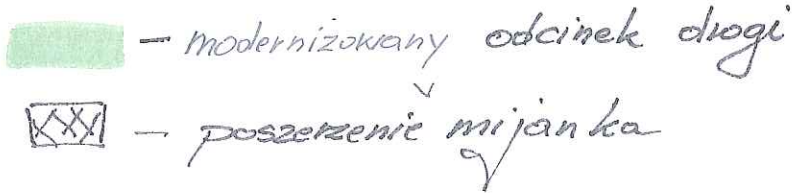 – modernizowany odcinek drogi
– poszerzenie mijanka